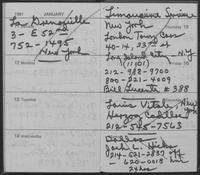 1981 JANUARY
La Grenouille
3 - E 52nd
752-1495
New York
12 Monday
13 Tuesday
14 Wednesday
Limousine Service
New York
London Town Cars
40-14, 23rd st
Long Island City N.Y.
(11101)
212-988-9700
800-221-4009
Bill # 388
Louis Vitale, New York
212-545-7563
Dallas
Jack L. Hicks
214-521-2837 off
620-0018
24 hrs